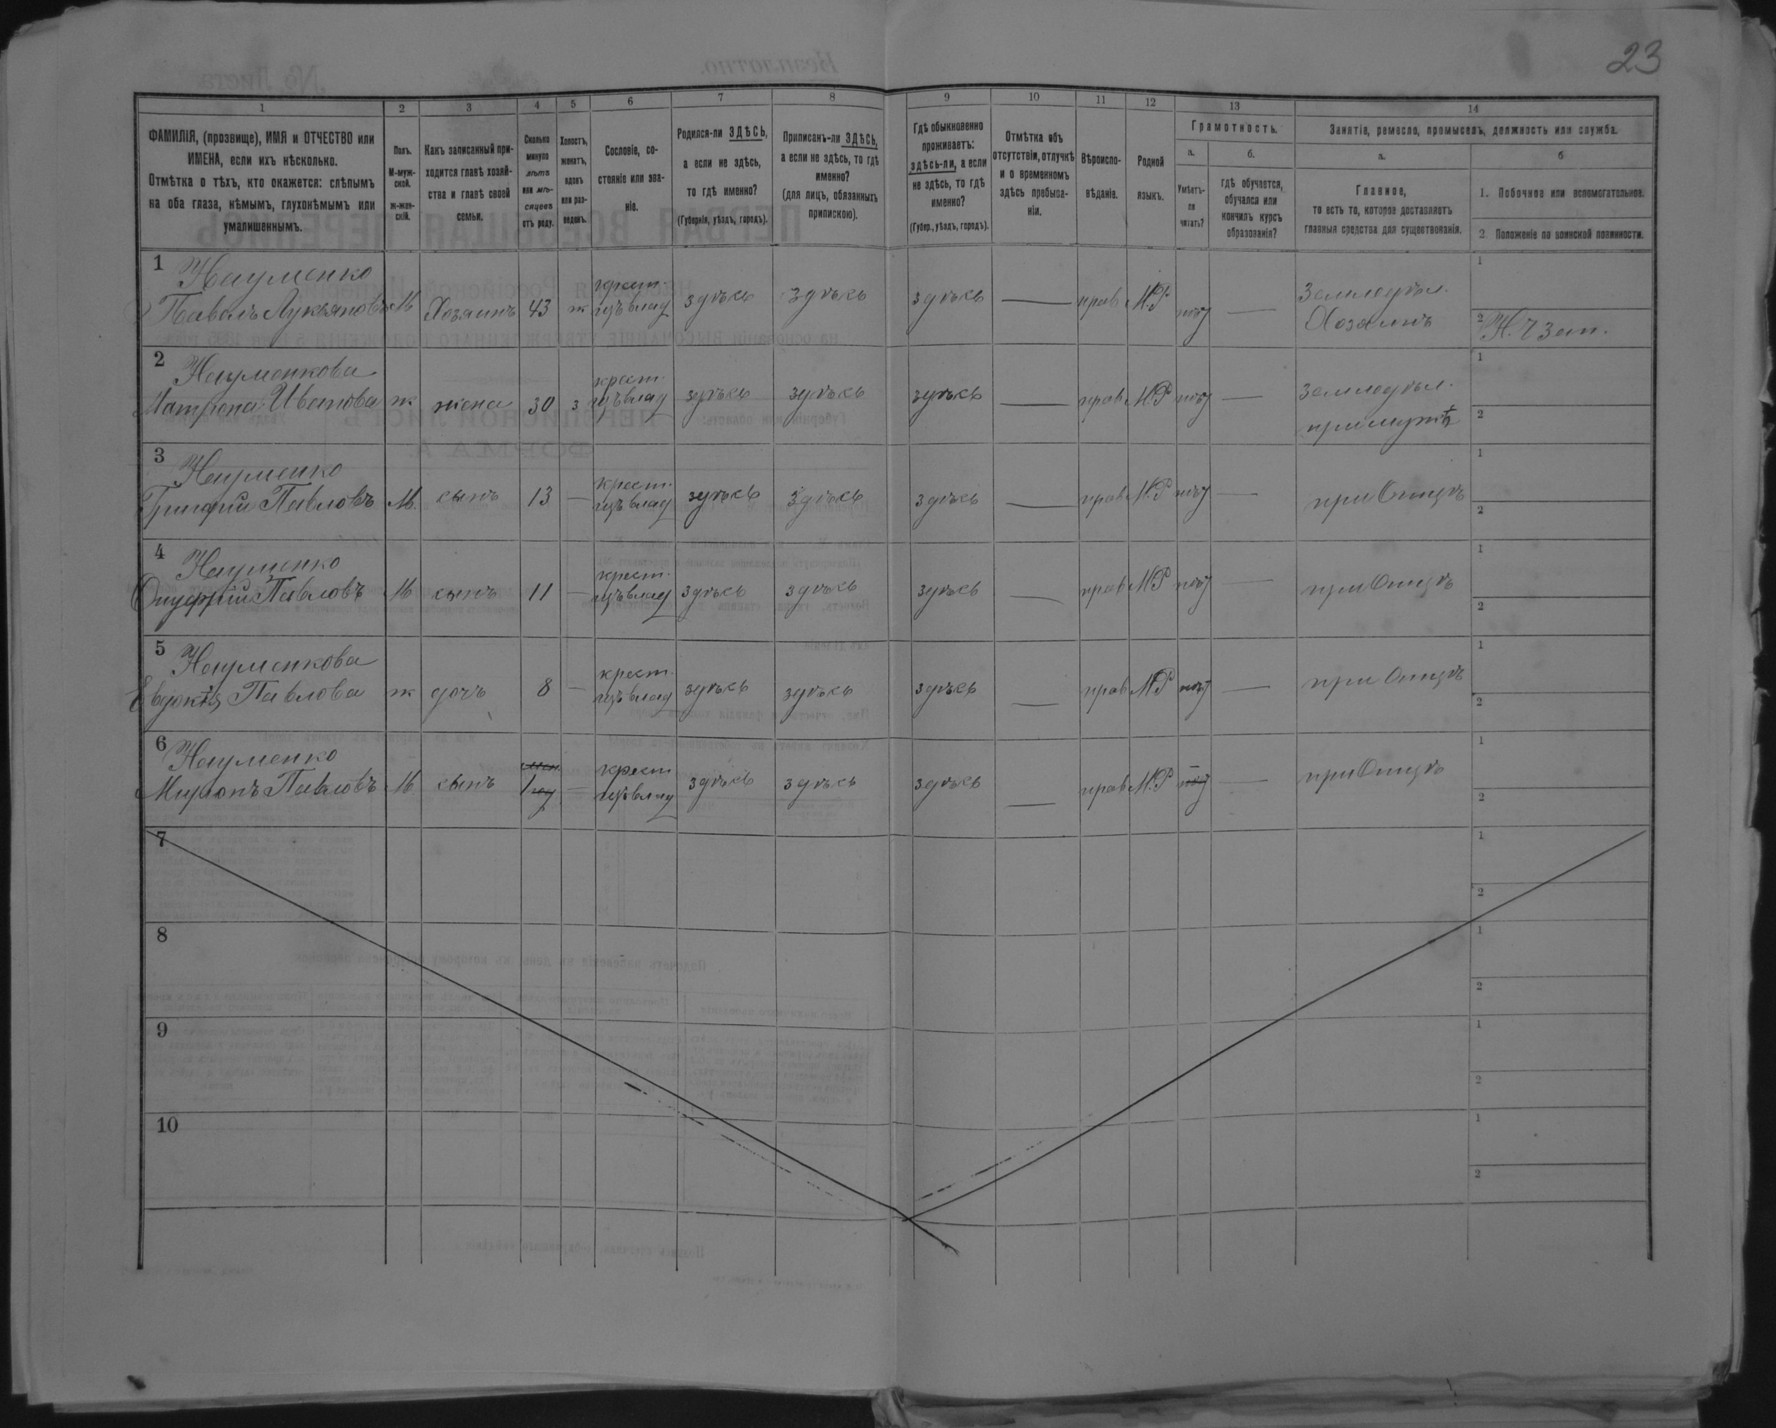 23
1 2 3 4 5 6 7 8 9 10 11 12 13 14
ФАМИЛІЯ, (прозвище), ИМЯ и ОТЧЕСТВО или
ИМЕНА, если ихъ нѣсколько.
Отмѣтка о тѣхъ, кто окажется: слѣпымъ
на оба глаза, нѣмымъ, глухонѣмымъ или
умалишеннымъ.
Полъ.
М-муж-
ской.
ж-жен-
скій.
Какъ записанный при-
ходится главѣ хозяй-
ства и главѣ своей
семьи.
Сколько
минуло
лѣтъ
или мѣ-
сяцевъ
отъ роду.
Холостъ,
женатъ,
вдовъ
или раз-
веденъ.
Сословіе, со-
стояніе или зва-
ніе.
Родился-ли ЗДѢСЬ,
а если не здѣсь,
то гдѣ именно?
(Губернія, уѣздъ, городъ).
Приписанъ-ли ЗДѢСЬ,
а если не здѣсь, то гдѣ
именно?
(для лицъ, обязанныхъ
припискою).
Гдѣ обыкновенно
проживаетъ:
здѣсь-ли, а если
не здѣсь, то гдѣ
именно?
(Губер., уѣздъ, городъ).
Отмѣтка объ
отсутствіи, отлучкѣ
и о временномъ
здѣсь пребыва-
ніи.
Вѣроиспо-
вѣданіе.
Родной
языкъ.
Грамотность.
а. б.
Умѣетъ-
ли
читать?
гдѣ обучается,
обучался или
кончилъ курсъ
образованія?
Занятіе, ремесло, промыселъ, должность или служба.
а. б
Главное,
то есть то, которое доставляетъ
главныя средства для существованія.
1. Побочное или вспомогательное.
2 Положеніе по воинской повинности.
1 Науменко
Павелъ Лукьяновъ М Хозяинъ 43 ж крест. изъ влад здѣсь здѣсь здѣсь — прав М.Р нѣт — Земледѣл. Хозяинъ
1
2 Н. Ч зап.
2 Науменкова
Матрена Иванова ж жена 30 з крест. изъ влад здѣсь здѣсь здѣсь — прав М.Р нѣт — земледѣл. при мужѣ
1
2
3 Науменко
Григорій Павловъ М. сынъ 13 — крест. изъ влад здѣсь здѣсь здѣсь — прав М.Р нѣт — при Отцѣ
1
2
4 Науменко
Онуфрій Павловъ М сынъ 11 — крест. изъ влад здѣсь здѣсь здѣсь — прав М.Р нѣт — при Отцѣ
1
2
5 Науменкова
Евдокія Павлова ж дочь 8 — крест. изъ влад здѣсь здѣсь здѣсь — прав М.Р нѣт — при Отцѣ
1
2
6 Науменко
Миронъ Павловъ М сынъ 1 год — крест изъ влад здѣсь здѣсь здѣсь — прав М.Р нѣт — при Отцѣ
1
2
7
1
2
8
1
2
9
1
2
10
1
2